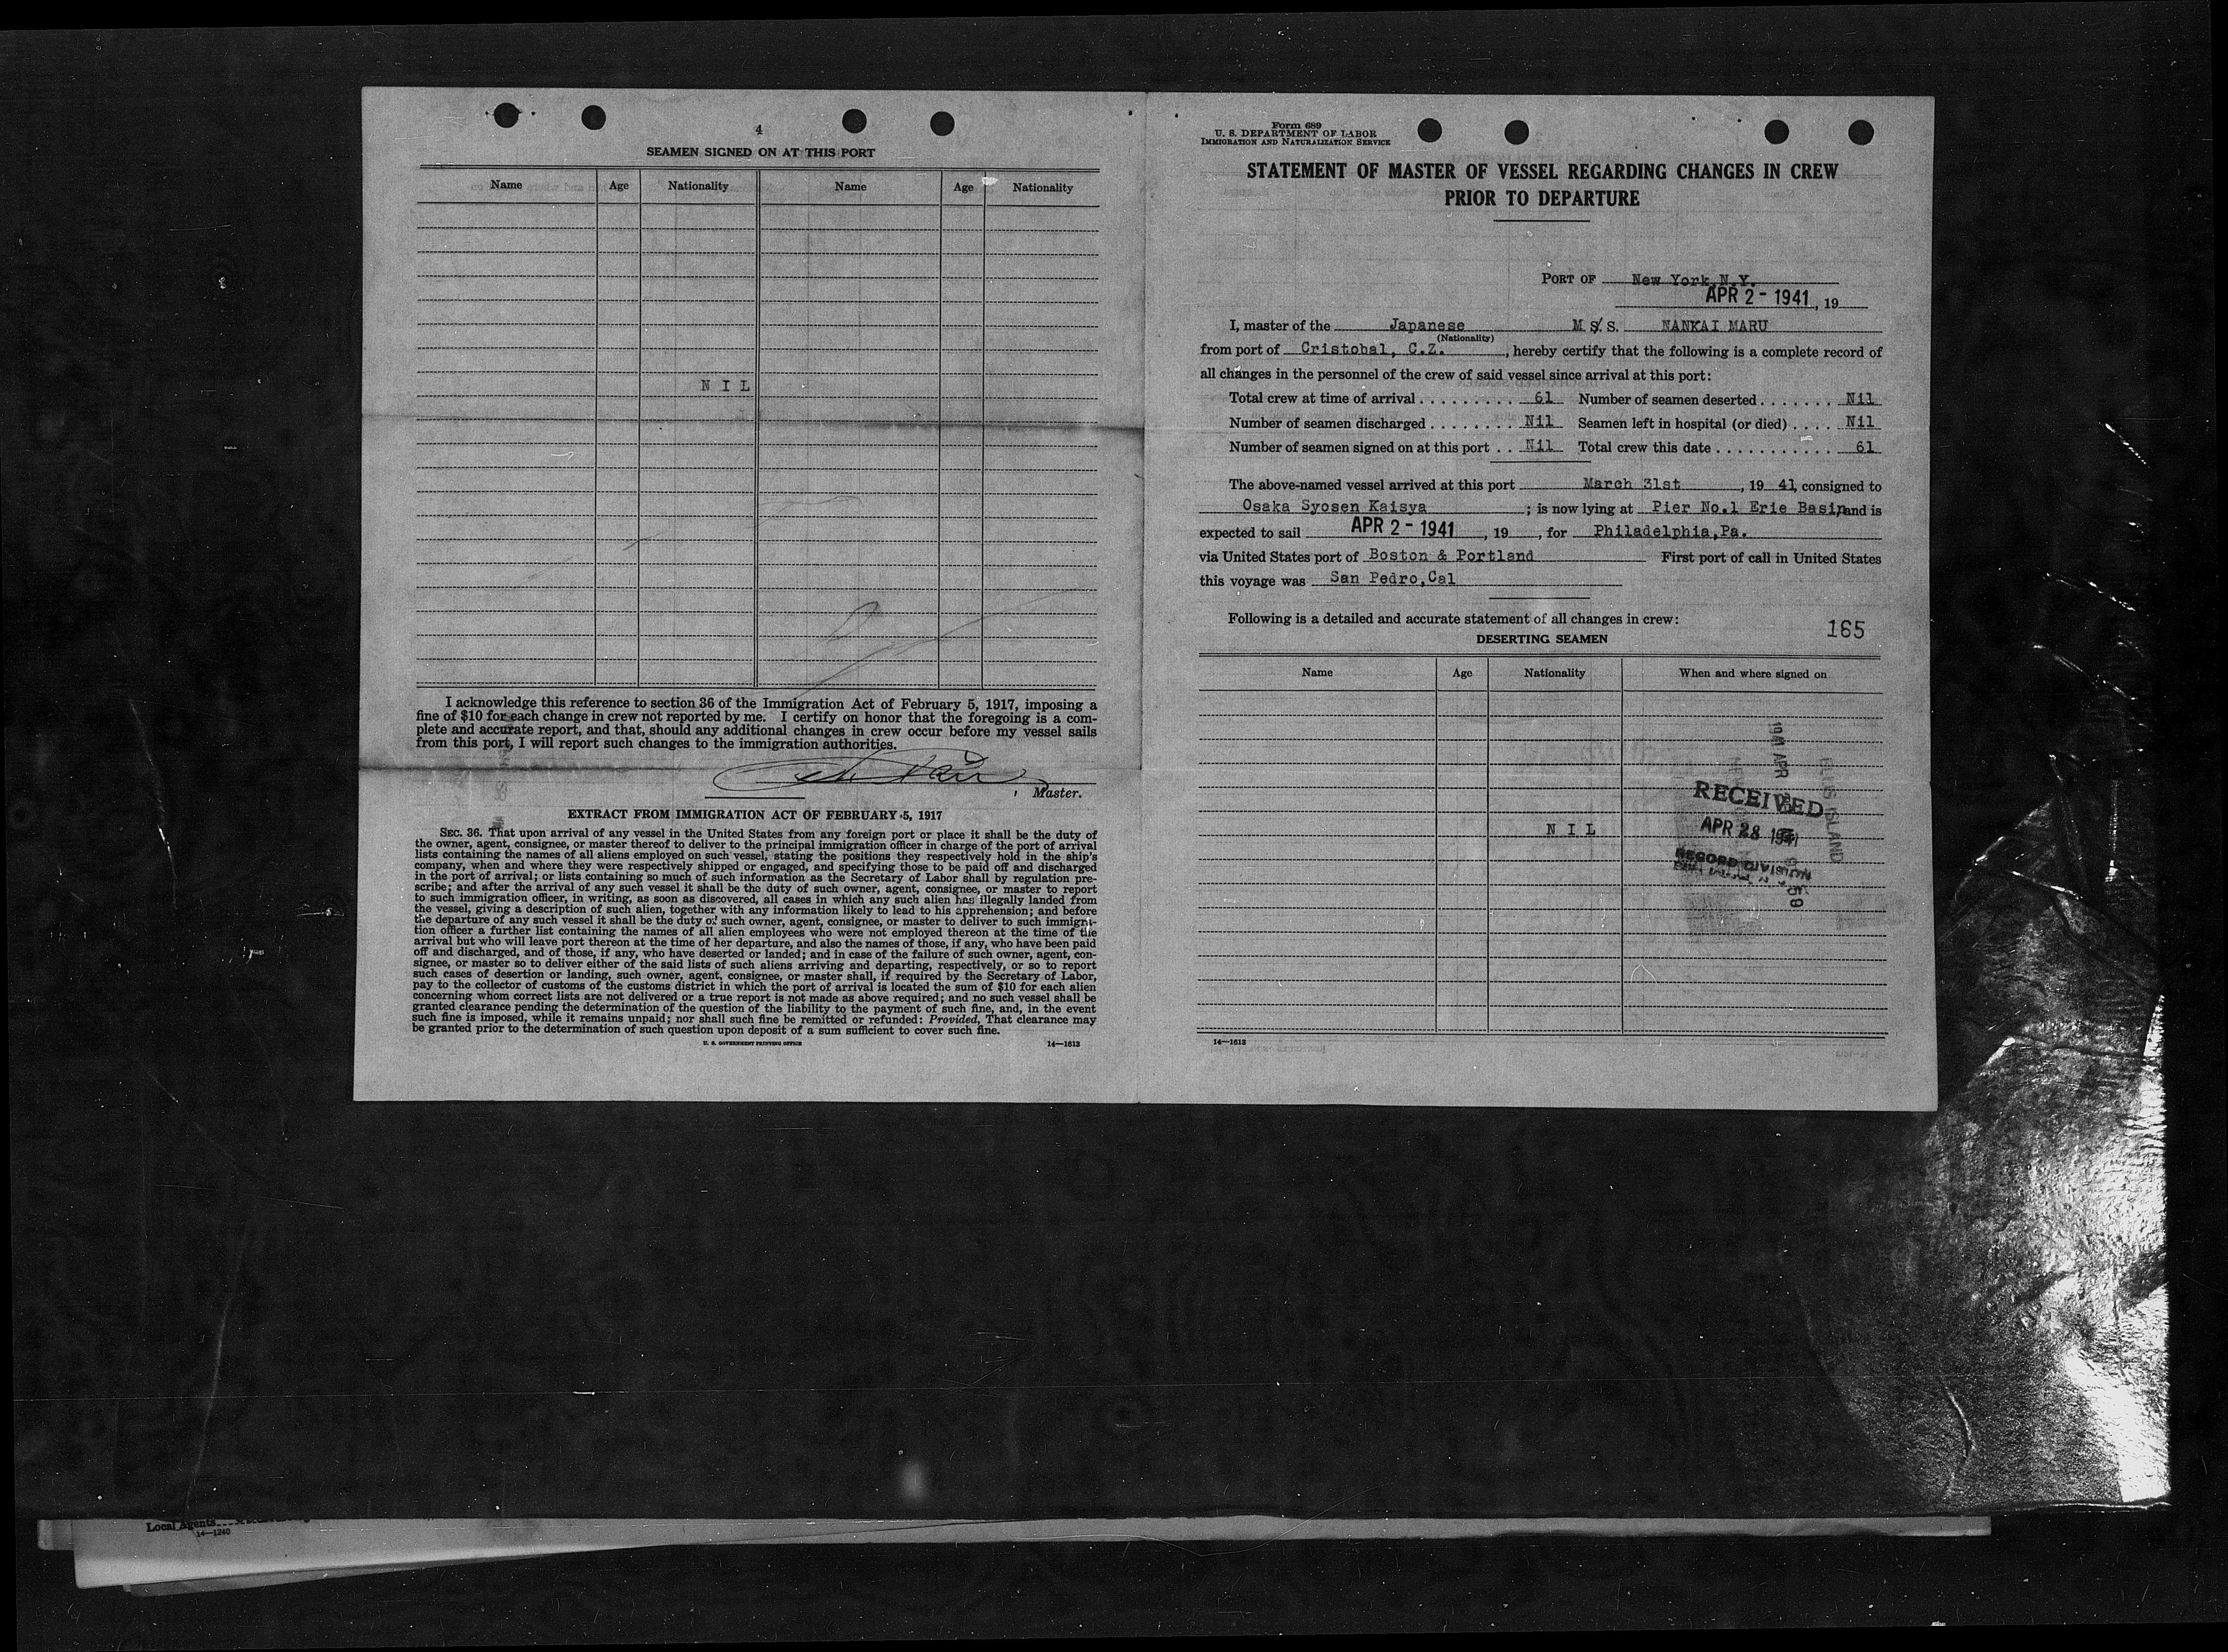 4
SEAMEN SIGNED ON AT THIS PORT
Name Age Nationality Name Age Nationality
N I L
I acknowledge this reference to section 36 of the Immigration Act of February 5, 1917, imposing a
fine of $10 for each change in crew not reported by me. I certify on honor that the foregoing is a com-
plete and accurate report, and that, should any additional changes in crew occur before my vessel sails
from this port, I will report such changes to the immigration authorities.
, Master.
EXTRACT FROM IMMIGRATION ACT OF FEBRUARY 5, 1917
SEC. 36. That upon arrival of any vessel in the United States from any foreign port or place it shall be the duty of
the owner, agent, consignee, or master thereof to deliver to the principal immigration officer in charge of the port of arrival
lists containing the names of all aliens employed on such vessel, stating the positions they respectively hold in the ship's
company, when and where they were respectively shipped or engaged, and specifying those to be paid off and discharged
in the port of arrival; or lists containing so much of such information as the Secretary of Labor shall by regulation pre-
scribe; and after the arrival of any such vessel it shall be the duty of such owner, agent, consignee, or master to report
to such immigration officer, in writing, as soon as discovered, all cases in which any such alien has illegally landed from
the vessel, giving a description of such alien, together with any information likely to lead to his apprehension; and before
the departure of any such vessel it shall be the duty of such owner, agent, consignee, or master to deliver to such immigra-
tion officer a further list containing the names of all alien employees who were not employed thereon at the time of the
arrival but who will leave port thereon at the time of her departure, and also the names of those, if any, who have been paid
off and discharged, and of those, if any, who have deserted or landed; and in case of the failure of such owner, agent, con-
signee, or master so to deliver either of the said lists of such aliens arriving and departing, respectively, or so to report
such cases of desertion or landing, such owner, agent, consignee, or master shall, if required by the Secretary of Labor,
pay to the collector of customs of the customs district in which the port of arrival is located the sum of $10 for each alien
concerning whom correct lists are not delivered or a true report is not made as above required; and no such vessel shall be
granted clearance pending the determination of the question of the liability to the payment of such fine, and, in the event
such fine is imposed, while it remains unpaid; nor shall such fine be remitted or refunded: Provided, That clearance may
be granted prior to the determination of such question upon deposit of a sum sufficient to cover such fine.
U. S. GOVERNMENT PRINTING OFFICE 14—1613
Form 689
U. S. DEPARTMENT OF LABOR
IMMIGRATION AND NATURALIZATION SERVICE
STATEMENT OF MASTER OF VESSEL REGARDING CHANGES IN CREW
PRIOR TO DEPARTURE
PORT OF New York, N.Y.
APR 2 - 1941, 19
I, master of the Japanese M S. S. NANKAI MARU
(Nationality)
from port of Cristobal, C.Z. , hereby certify that the following is a complete record of
all changes in the personnel of the crew of said vessel since arrival at this port:
Total crew at time of arrival . . . . . . . . . 61 Number of seamen deserted . . . . . . . Nil
Number of seamen discharged . . . . . . . . Nil Seamen left in hospital (or died) . . . . Nil
Number of seamen signed on at this port . . Nil Total crew this date . . . . . . . . . . . 61
The above-named vessel arrived at this port March 31st , 19 41, consigned to
Osaka Syosen Kaisya ; is now lying at Pier No.1 Erie Basin and is
expected to sail APR 2 - 1941 , 19 , for Philadelphia,Pa.
via United States port of Boston & Portland First port of call in United States
this voyage was San Pedro,Cal
Following is a detailed and accurate statement of all changes in crew:
165
DESERTING SEAMEN
Name Age Nationality When and where signed on
1941 APR
ELLIS ISLAND
RECEIVED
N I L
APR 28 1941
RECORD DIVISION
14—1613
Local Agents
14—1240